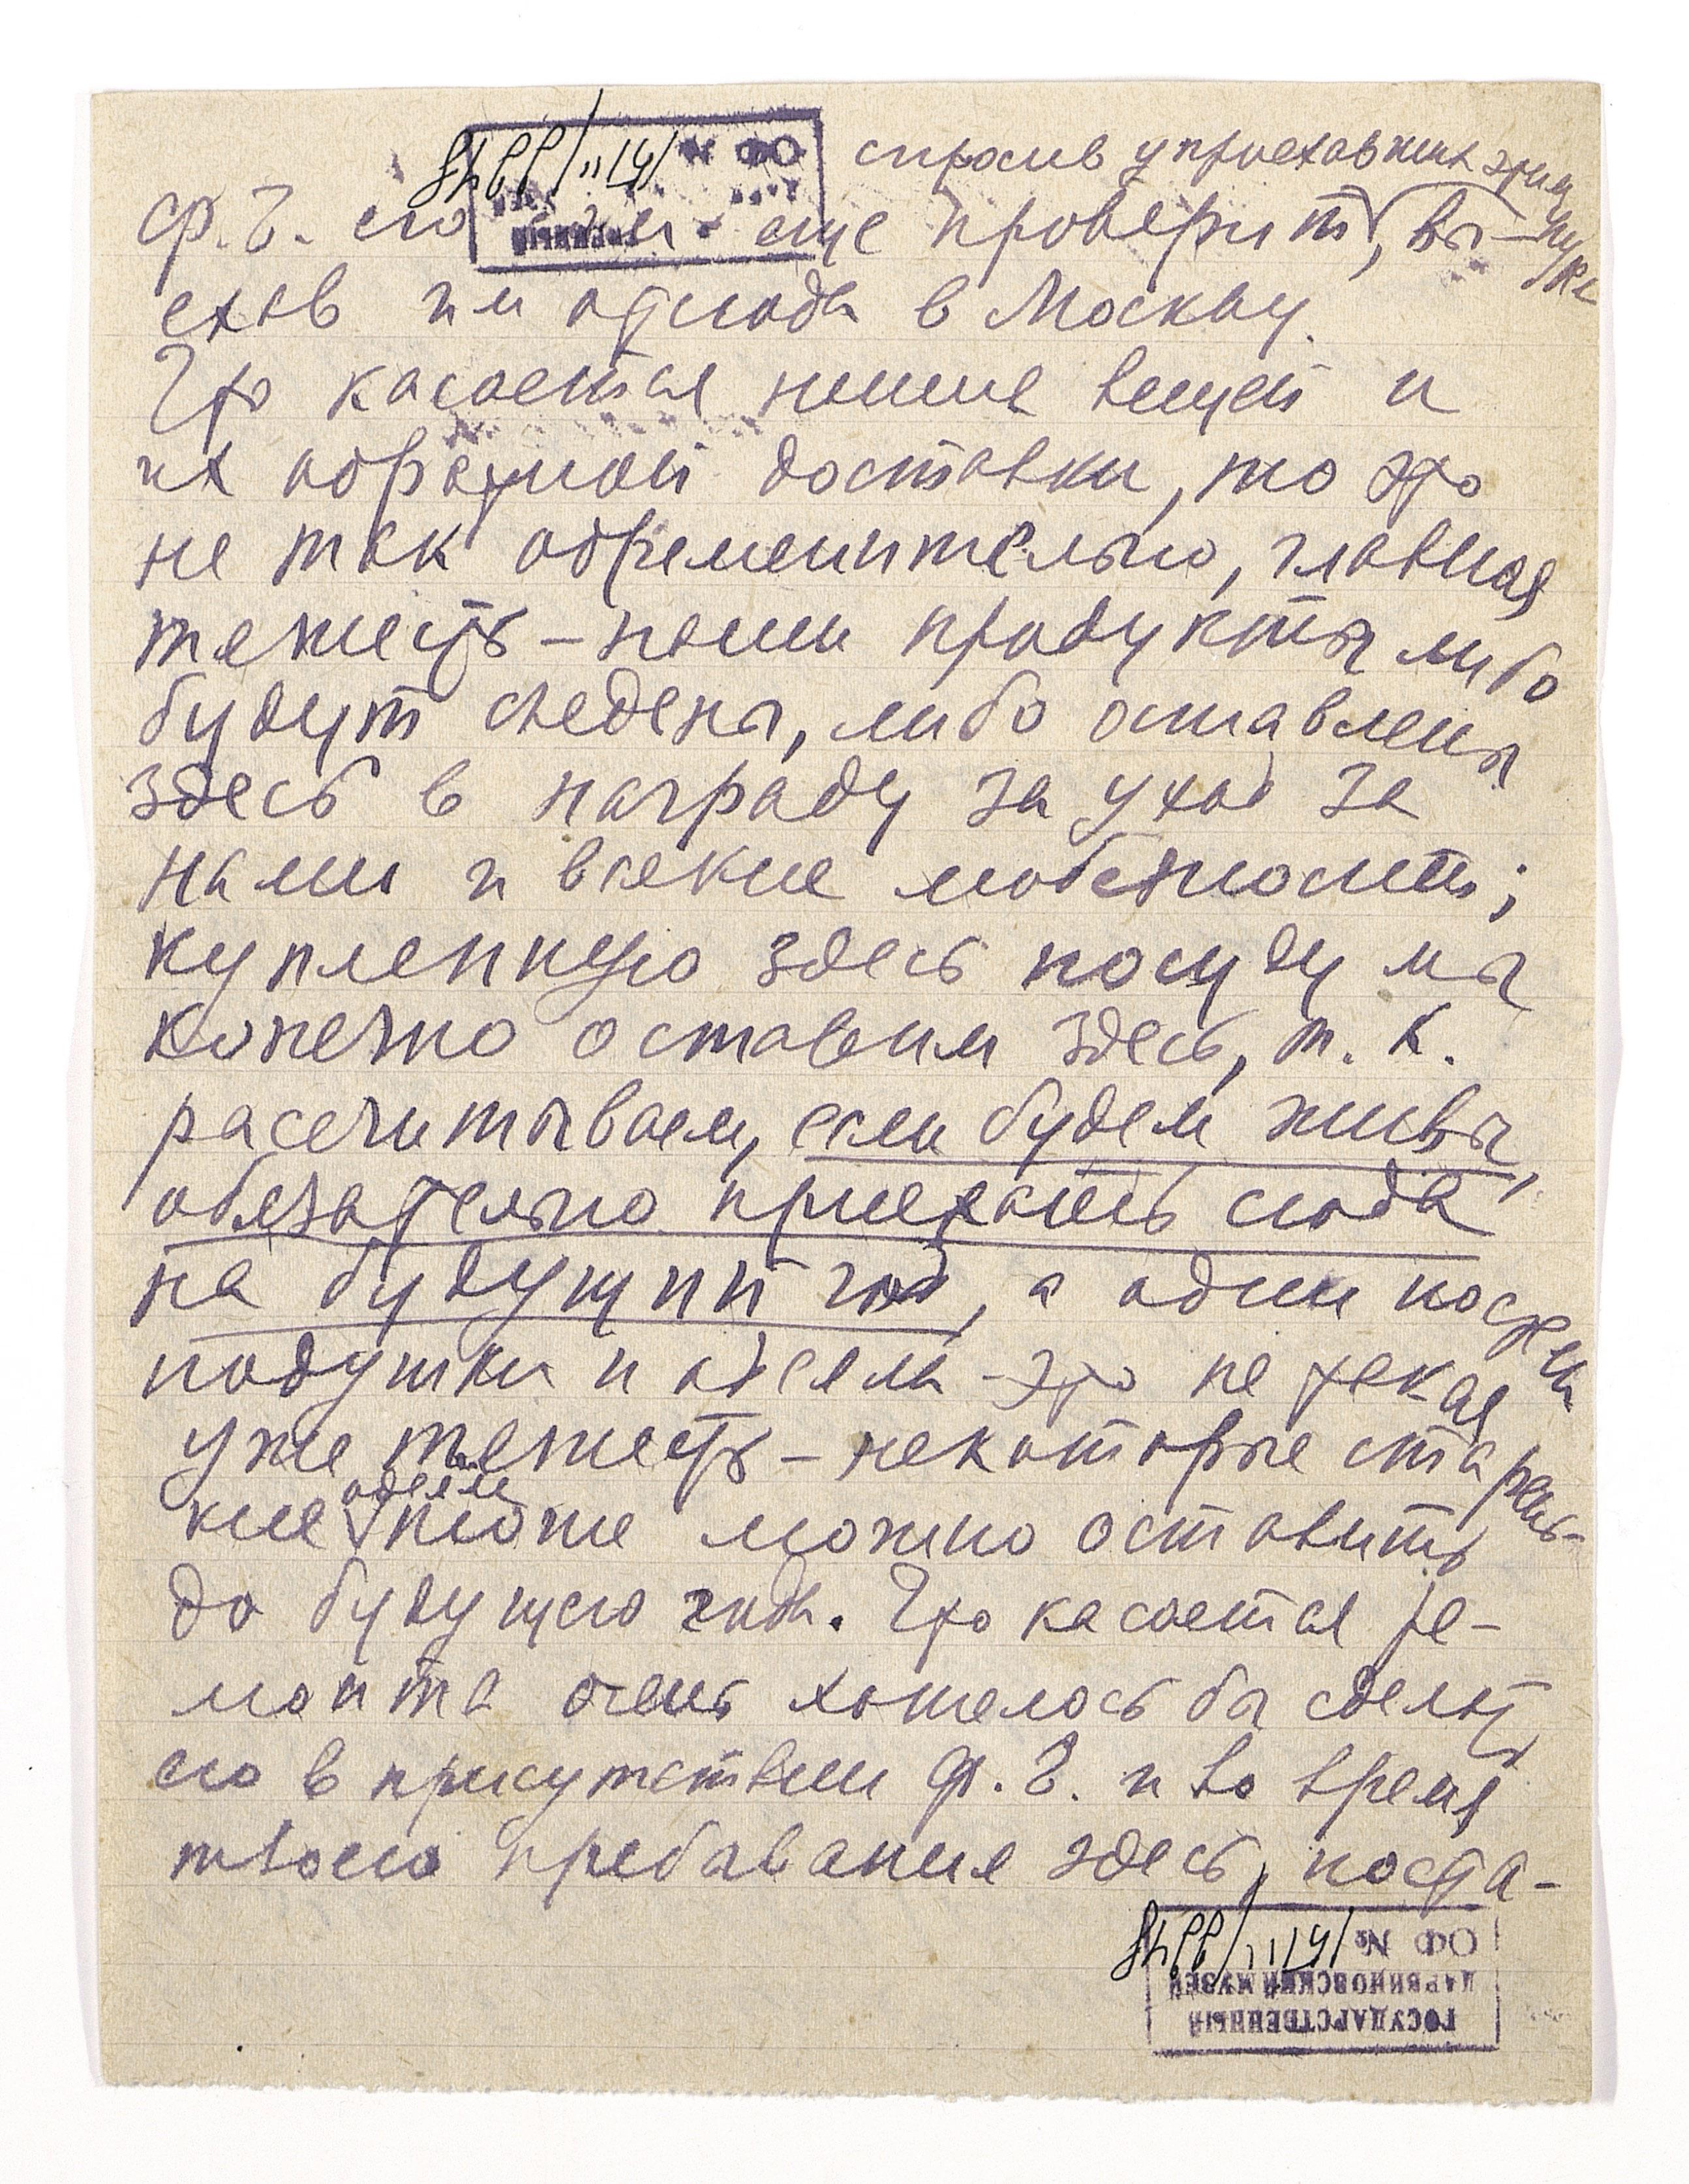 спросив у приехавших этим
Ф. Е. его еще проверит, вы-
ехав им отсюда в Москву.
Что касается наших вещей и
их обратной доставки, то это
не так обременительно, главная
тяжесть – наши продукты либо
будут съедены, либо оставлены
здесь в награду за уход за
нами и всякие любезности;
купленную здесь посуду мы
конечно оставим здесь, т. к.
рассчитываем, если будем живы,
обязательно приехать сюда
на будущий год, а одни постели
подушки и одеяла – это не такая
уже тяжесть – некоторые старень-
кие одеяла тоже можно оставить
до будущего года. Что касается ре-
монта очень хотелось бы сделать
его в присутствии Ф. Е. и во время
твоего пребывания здесь, поста-
ОФ №
ДАРВИНОВСКИЙ МУЗЕЙ
ГОСУДАРСТВЕННЫЙ